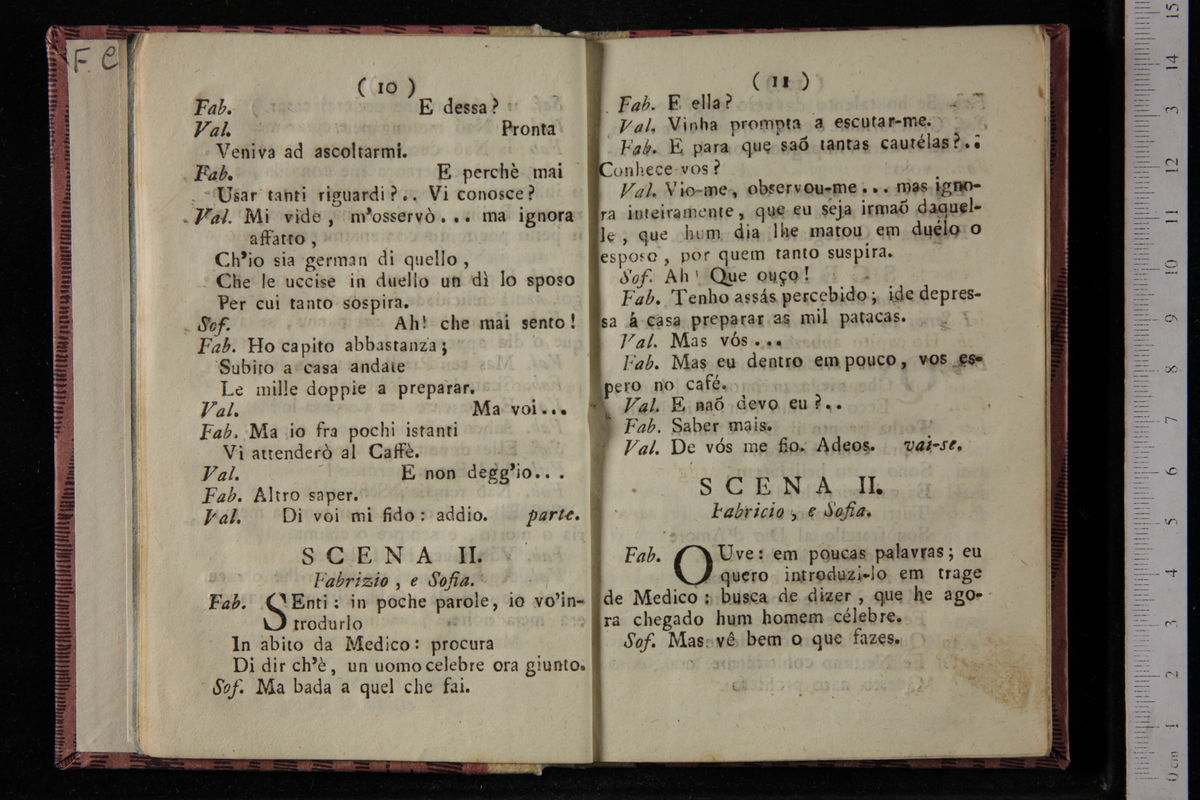 F. C
( 10 )
Fab. E dessa?
Val. Pronta
Veniva ad ascoltarmi.
Fab. E perchè mai
Usar tanti riguardi?.. Vi conosce?
Val. Mi vide, m'osservò... ma ignora
affatto,
Ch'io sia german di quello,
Che le uccise in duello un dì lo sposo
Per cui tanto sospira.
Sof. Ah! che mai sento!
Fab. Ho capito abbastanza;
Subito a casa andate
Le mille doppie a preparar.
Val. Ma voi...
Fab. Ma io fra pochi istanti
Vi attenderò al Caffè.
Val. E non degg'io...
Fab. Altro saper.
Val. Di voi mi fido: addio. parte.
SCENA II.
Fabrizio, e Sofia.
Fab. SEnti: in poche parole, io vo'in-
trodurlo
In abito da Medico: procura
Di dir ch'è, un uomo celebre ora giunto.
Sof. Ma bada a quel che fai.
( 11 )
Fab. E ella?
Val. Vinha prompta a escutar-me.
Fab. E para que saõ tantas cautélas?..
Conhece vos?
Val. Vio-me, observou-me... mas igno-
ra inteiramente, que eu seja irmaõ daquel-
le, que hum dia lhe matou em duélo o
esposo, por quem tanto suspira.
Sof. Ah! Que ouço!
Fab. Tenho assás percebido; ide depres-
sa á casa preparar as mil patacas.
Val. Mas vós...
Fab. Mas eu dentro em pouco, vos es-
pero no café.
Val. E naõ devo eu?..
Fab. Saber mais.
Val. De vós me fio. Adeos. vai-se.
SCENA II.
Fabricio, e Sofia.
Fab. OUve: em poucas palavras; eu
quero introduzi-lo em trage
de Medico: busca de dizer, que he ago-
ra chegado hum homem célebre.
Sof. Mas vê bem o que fazes.
0 cm 1 2 3 4 5 6 7 8 9 10 11 12 13 14 15